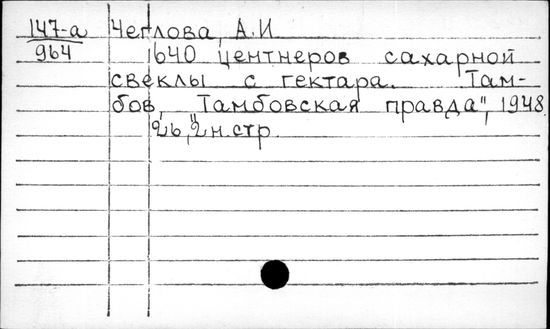 147-а Чеглова, А.И
964 640 центнеров сахарной
свеклы с гектара. Там-
бов, "Тамбовская правда", 1948.
2ь, 2н.стр.